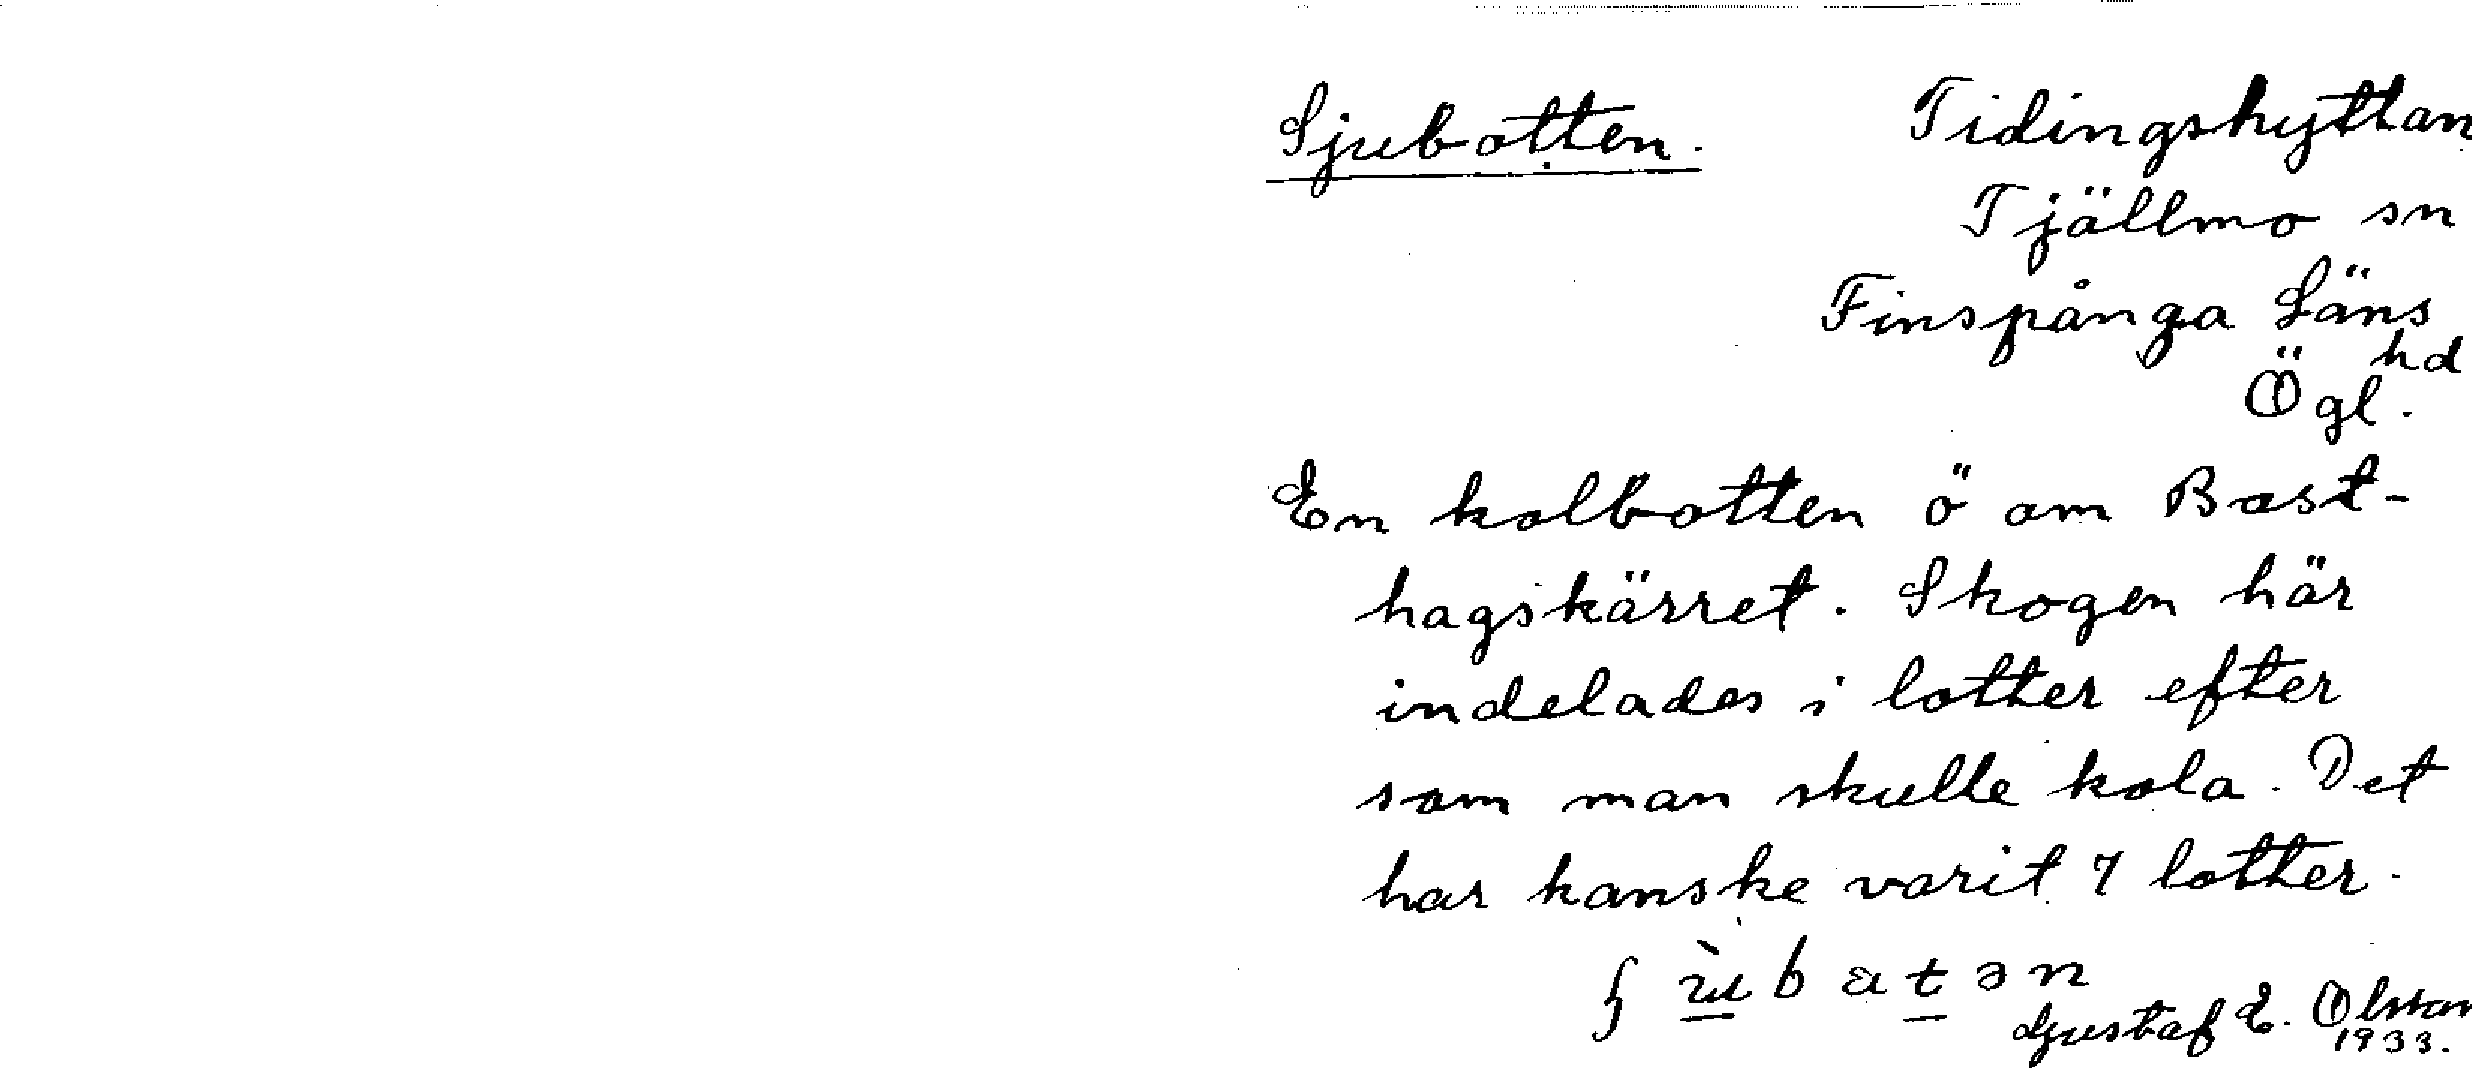 Sjubotten. Tidingshyttan
Tjällmo sn
Finspånga Läns
hd
Ögl.
En kolbotten ö om Bast-
hagskärret. Skogen här
indelades i lotter efter
som man skulle kola. Det
har kanske varit 7 lotter.
Gustaf E. Olsson
1933.